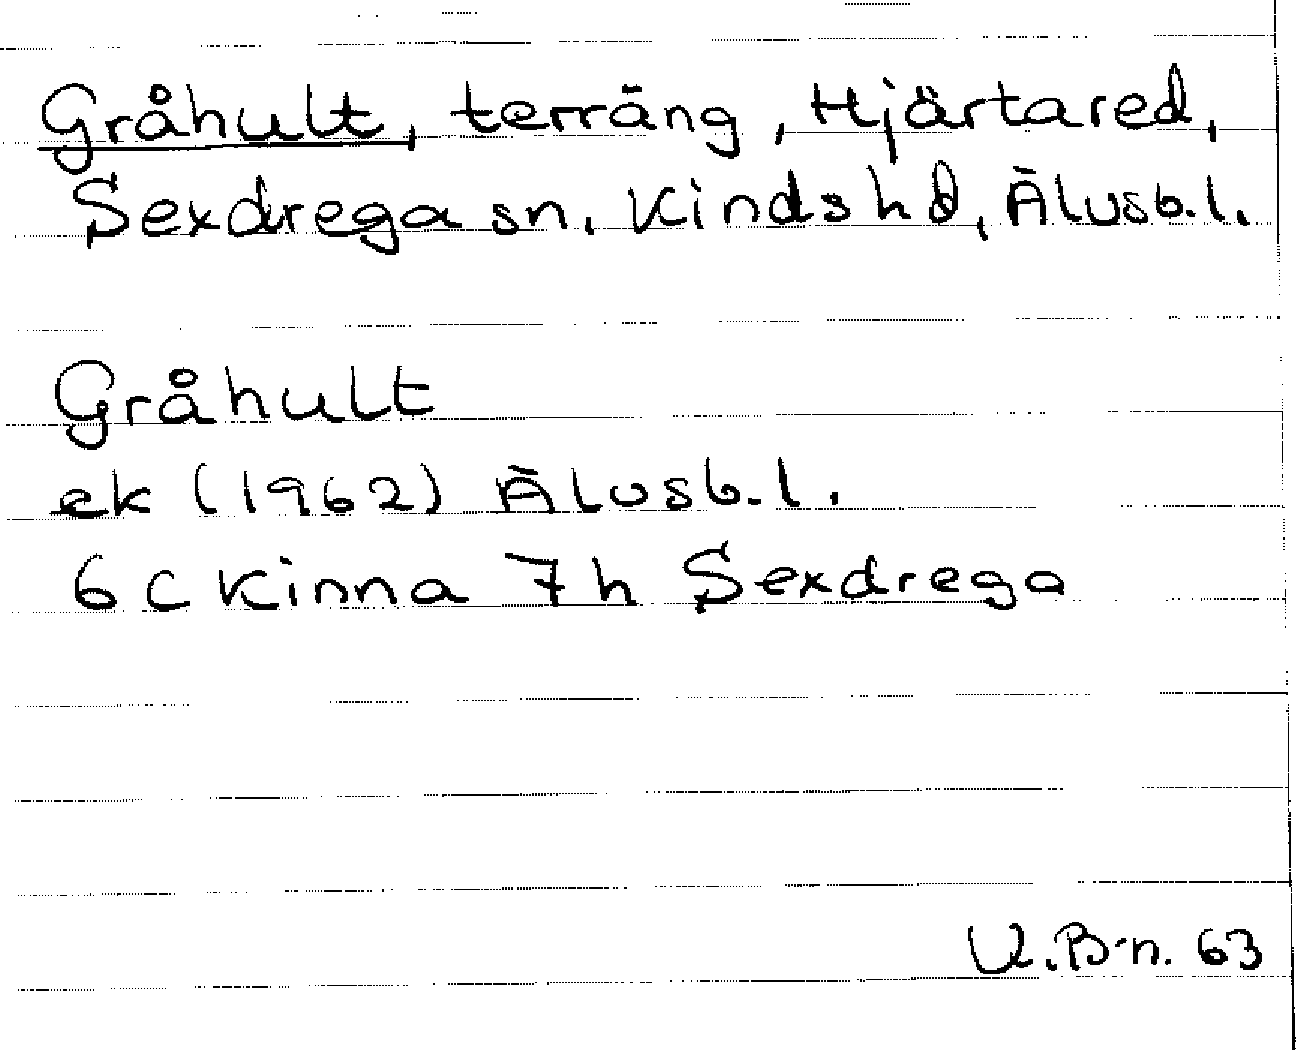 Gråhult, terräng, Hjärtared,
Sexdrega sn, Kinds hd, Älvsb.l.
Gråhult
ek (1962) Älvsb.l.
6c Kinna 7h Sexdrega
U.B-n. 63